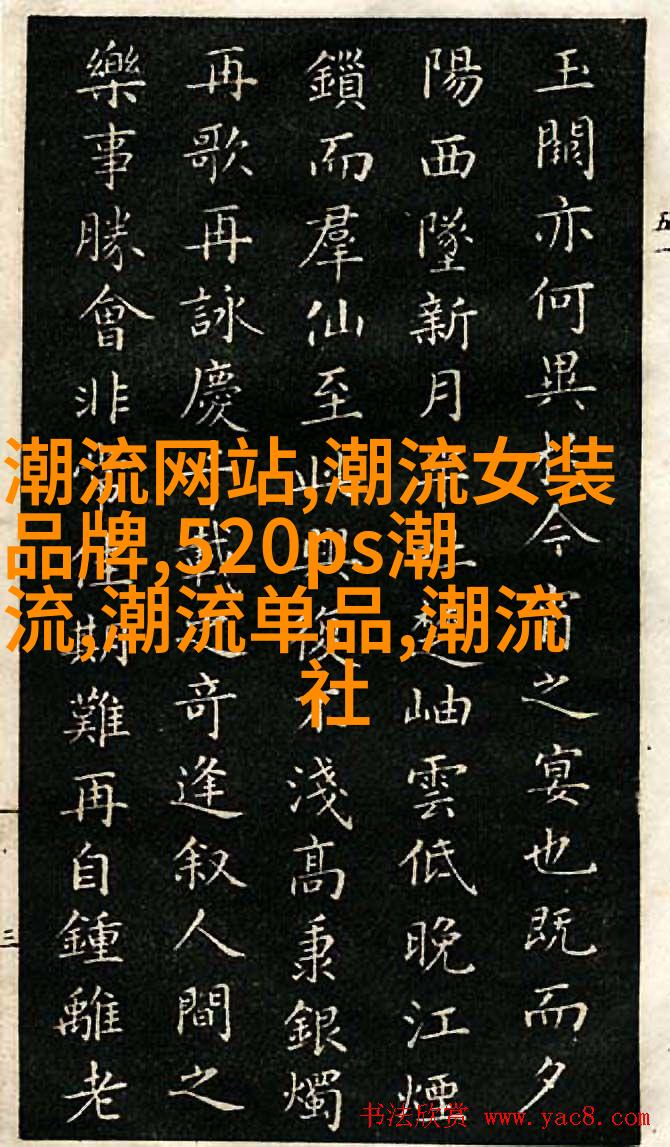 玉闕亦何異於今宵之宴也既而夕
陽西墜新月楚岫雲低晚江煙
鎖而羣仙至興復不淺高秉銀燭
再歌再詠慶千載之奇逢叙人間之
樂事勝會非常佳期難再自鍾離老
潮流网站,潮流女装
品牌,520ps潮
流,潮流单品,潮流
社
五
三
书法欣赏 www.yac8.com